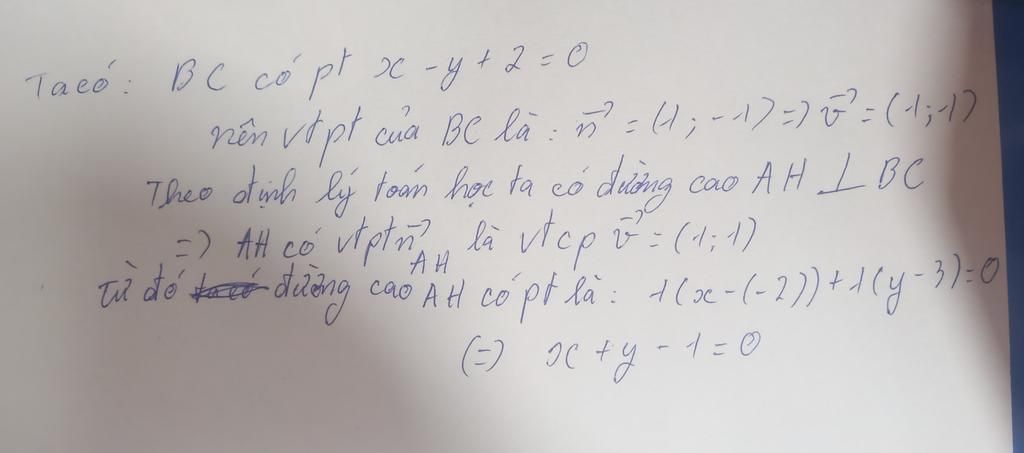 Ta có: BC có pt x - y + 2 = 0
nên vtpt của BC là: n⃗ = (1; -1) => v⃗ = (1; 1)
Theo định lý toán học ta có đường cao AH ⊥ BC
=> AH có vtpt n⃗ AH là vtcp v⃗ = (1; 1)
từ đó đường cao AH có pt là: 1(x-(-2)) + 1(y-3) = 0
(=) x + y - 1 = 0